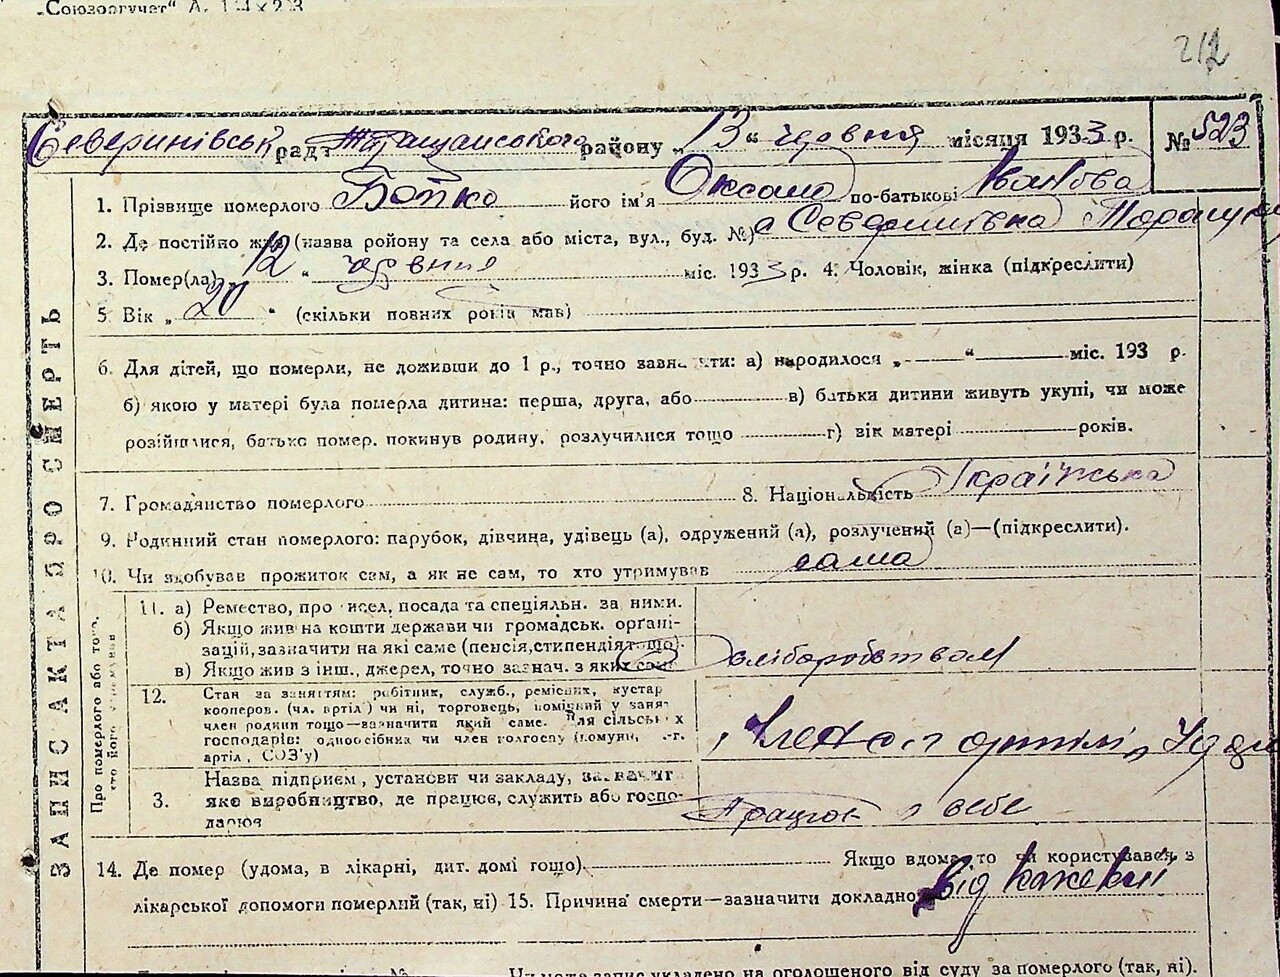 „Союзоргучет“
212
Северинівськ рад Таращанського району „ 13 “ червня місяця 1933 р. № 523
1. Прізвище померлого Бойко його ім'я Оксана по-батькові Іванова
2. Де постійно жив (назва ройону та села або міста, вул., буд. №) с Северинівка
3. Помер(ла) 12 “ червня міс. 1933 р. 4. Чоловік, жінка (підкреслити)
5. Вік „ 20 “ (скільки повних років мав)
6. Для дітей, що померли, не доживши до 1 р., точно зазначити: а) народилося „ — “ — міс. 193 р.
б) якою у матері була померла дитина: перша, друга, або в) батьки дитини живуть укупі, чи може
розійшлися, батько помер. покинув родину, розлучилися тощо г) вік матері років.
7. Громадянство померлого 8. Національність Українська
9. Родинний стан померлого: парубок, дівчина, удівець (а), одружений (а), розлучений (а)—(підкреслити).
10. Чи здобував прожиток сам, а як не сам, то хто утримував сама
ЗАПИС АКТА ПРО СМЕРТЬ
Про померлого або того,
хто його утримував
11. а) Ремество, промисел, посада та спеціяльн. за ними.
б) Якщо жив на кошти держави чи громадськ. орґані-
зацій, зазначити на які саме (пенсія, стипендія тощо)
в) Якщо жив з інш., джерел, точно зазнач. з яких саме
хліборобством
12. Стан за заняттям: робітник, служб., ремісник, кустар
кооперов. (чл. артіл) чи ні, торговець, помічний у занят
член родини тощо—зазначити який саме. Для сільських
господарів: одноосібник чи член колгоспу (комуни, с.-г.
артіл, СОЗ'у)
Член с г артілі
3. Назва підприєм, установи чи закладу, зазначит
яке виробництво, де працює, служить або госпо-
дарює
14. Де помер (удома, в лікарні, дит. домі тощо). Якщо вдома, то чи користувався з
лікарської допомоги померлий (так, ні) 15. Причина смерти—зазначити докладно Від
№ Чи може запис укладено на оголошеного від суду за померлого (так, ні).